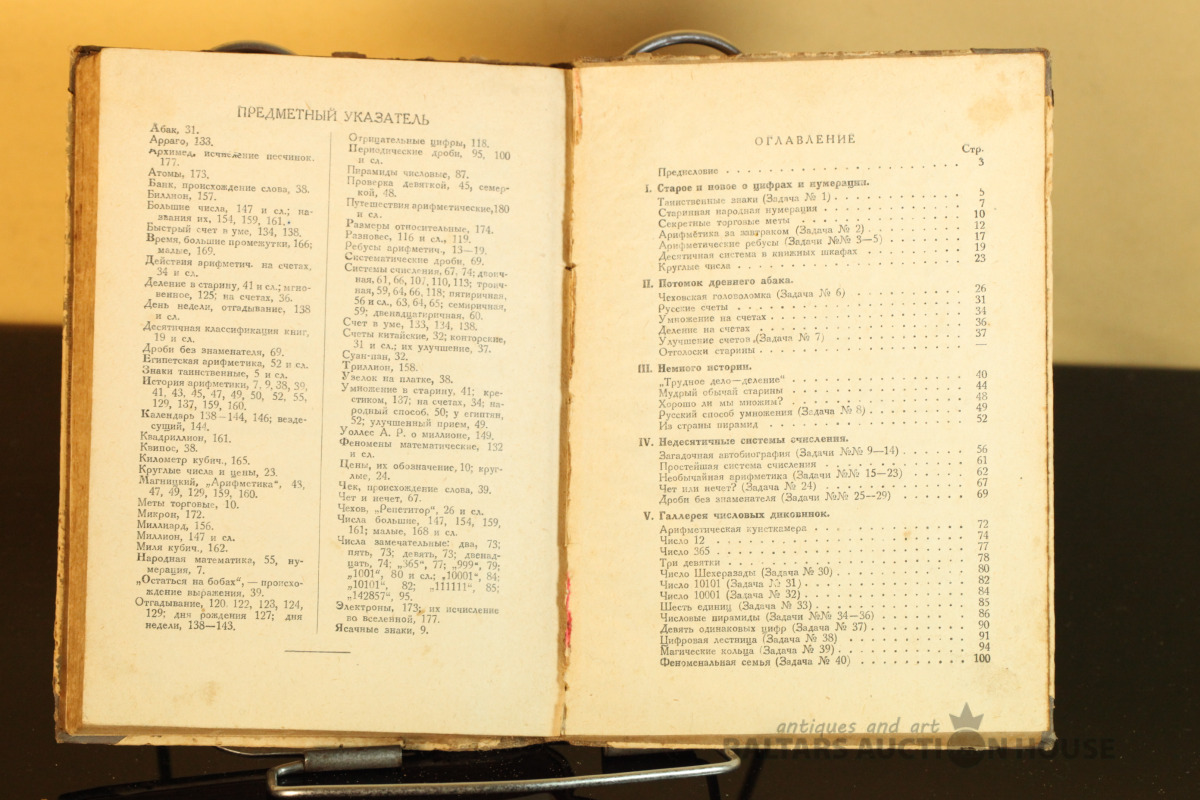 ПРЕДМЕТНЫЙ УКАЗАТЕЛЬ
Абак, 31.
Арраго, 133.
Архимед, исчисление песчинок.
177.
Атомы, 173.
Банк, происхождение слова, 38.
Биллион, 157.
Большие числа, 147 и сл.; на-
звания их, 154, 159, 161.
Быстрый счет в уме, 134, 138.
Время, большие промежутки, 166;
малые, 169.
Действия арифметич. на счетах,
34 и сл.
Деление в старину, 41 и сл.; мгно-
венное, 125; на счетах, 36.
День недели, отгадывание, 138
и сл.
Десятичная классификация книг,
19 и сл.
Дроби без знаменателя, 69.
Египетская арифметика, 52 и сл.
Знаки таинственные, 5 и сл.
История арифметики, 7, 9, 38, 39,
41, 43, 45, 47, 49, 50, 52, 55,
129, 137, 159, 160.
Календарь 138—144, 146; везде-
сущий, 144.
Квадриллион, 161.
Квипос, 38.
Километр кубич., 165.
Круглые числа и цены, 23.
Магницкий, „Арифметика“, 43,
47, 49, 129, 159, 160.
Меты торговые, 10.
Микрон, 172.
Миллиард, 156.
Миллион, 147 и сл.
Миля кубич., 162.
Народная математика, 55, ну-
мерация, 7.
„Остаться на бобах“, — происхо-
ждение выражения, 39.
Отгадывание, 120. 122, 123, 124,
129; дня рождения 127; дня
недели, 138—143.
Отрицательные цифры, 118.
Периодические дроби, 95, 100
и сл.
Пирамиды числовые, 87.
Проверка девяткой, 45, семер-
кой, 48.
Путешествия арифметические, 180
и сл.
Размеры относительные, 174.
Разновес, 116 и сл., 119.
Ребусы арифметич., 13—19.
Систематические дроби, 69.
Системы счисления, 67, 74; двоич-
ная, 61, 66, 107, 110, 113; троич-
ная, 59, 64, 66, 118; пятиричная,
56 и сл., 63, 64, 65; семиричная,
59; двенадцатиричная, 60.
Счет в уме, 133, 134, 138.
Счеты китайские, 32; конторские,
31 и сл.; их улучшение, 37.
Суан-пан, 32.
Триллион, 158.
Узелок на платке, 38.
Умножение в старину, 41; кре-
стиком, 137; на счетах, 34; на-
родный способ, 50; у египтян,
52; улучшенный прием, 49.
Уоллес А. Р. о миллионе, 149.
Феномены математические, 132
и сл.
Цены, их обозначение, 10; круг-
лые, 24.
Чек, происхождение слова, 39.
Чет и нечет, 67.
Чехов, „Репетитор“, 26 и сл.
Числа большие, 147, 154, 159,
161; малые, 168 и сл.
Числа замечательные: два, 73;
пять, 73; девять, 73; двенад-
цать, 74; „365“, 77; „999“, 79;
„1001“, 80 и сл.; „10001“, 84;
„10101“, 82; „111111“, 85;
„142857“, 95.
Электроны, 173; их исчисление
во вселенной, 177.
Ясачные знаки, 9.
ОГЛАВЛЕНИЕ
Стр.
Предисловие 3
I. Старое и новое о цифрах и нумерации.
Таинственные знаки (Задача № 1) 5
Старинная народная нумерация 7
Секретные торговые меты 10
Арифметика за завтраком (Задача № 2) 12
Арифметические ребусы (Задачи №№ 3—5) 17
Десятичная система в книжных шкафах 19
Круглые числа 23
II. Потомок древнего абака.
Чеховская головоломка (Задача № 6) 26
Русские счеты 31
Умножение на счетах 34
Деление на счетах 36
Улучшение счетов (Задача № 7) 37
Отголоски старины —
III. Немного истории.
„Трудное дело—деление“ 40
Мудрый обычай старины 44
Хорошо ли мы множим? 48
Русский способ умножения (Задача № 8) 49
Из страны пирамид 52
IV. Недесятичные системы счисления.
Загадочная автобиография (Задачи №№ 9—14) 56
Простейшая система счисления 61
Необычайная арифметика (Задачи №№ 15—23) 62
Чет или нечет? (Задача № 24) 67
Дроби без знаменателя (Задачи №№ 25—29) 69
V. Галлерея числовых диковинок.
Арифметическая кунсткамера 72
Число 12 74
Число 365 77
Три девятки 78
Число Шехеразады (Задача № 30) 80
Число 10101 (Задача № 31) 82
Число 10001 (Задача № 32) 84
Шесть единиц (Задача № 33) 85
Числовые пирамиды (Задачи №№ 34—36) 86
Девять одинаковых цифр (Задача № 37) 90
Цифровая лестница (Задача № 38) 91
Магические кольца (Задача № 39) 94
Феноменальная семья (Задача № 40) 100
antiques and art
BALTARS AUCTION HOUSE